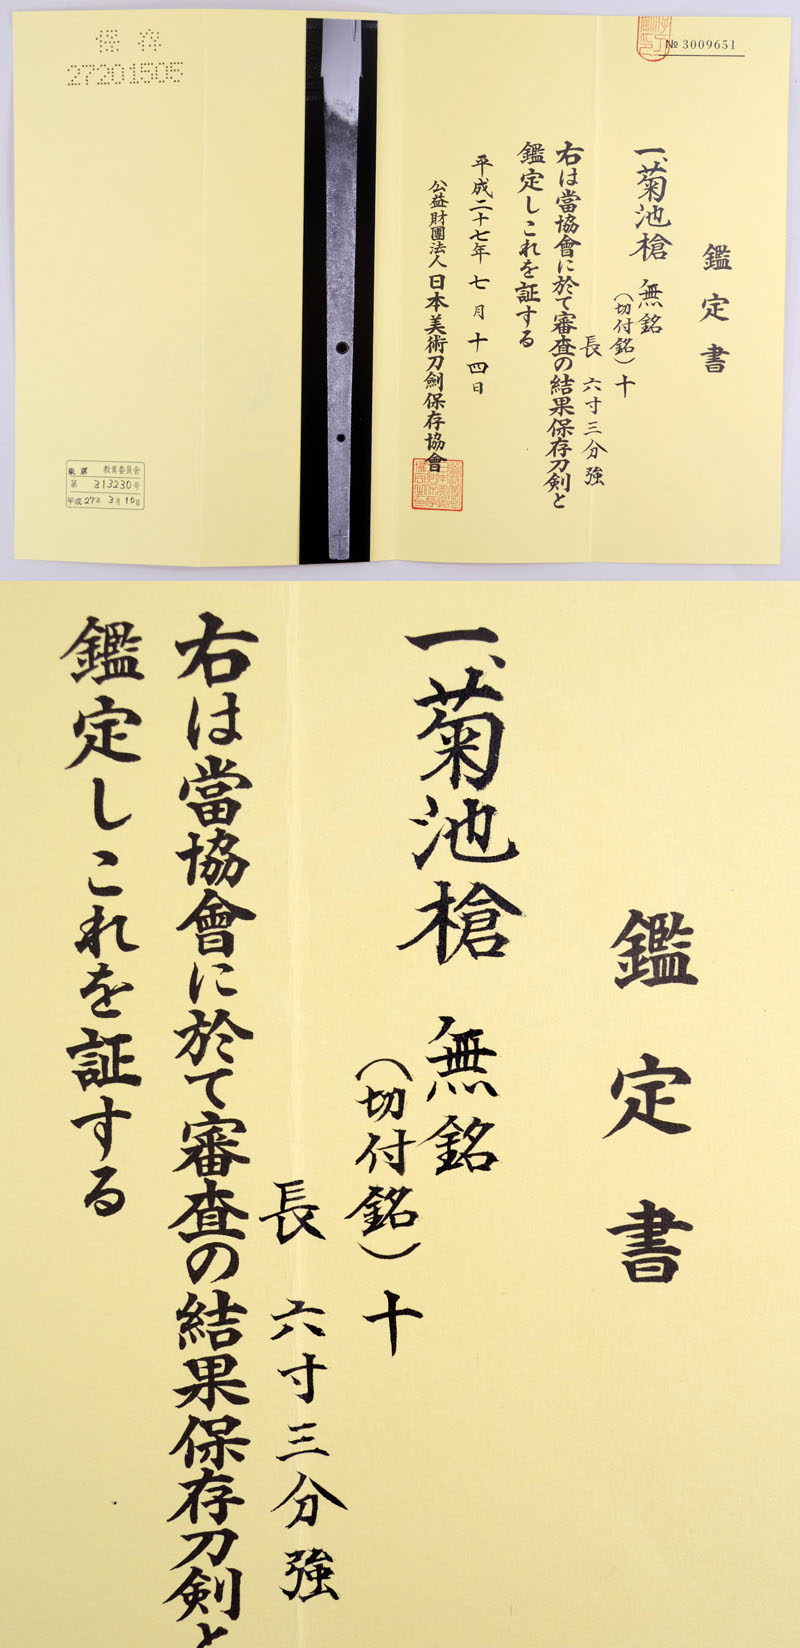 保存
27201505
№ 3009651
鑑定書
一、菊池槍 無銘
(切付銘)十
長 六寸三分強
右は當協會に於て審査の結果保存刀剣と
鑑定しこれを証する
平成二十七年七月十四日
公益財團法人日本美術刀劍保存協會
東京 教育委員会
第 313230号
平成27年3月10日
鑑定書
一、菊池槍 無銘
(切付銘)十
長 六寸三分強
右は當協會に於て審査の結果保存刀剣と
鑑定しこれを証する